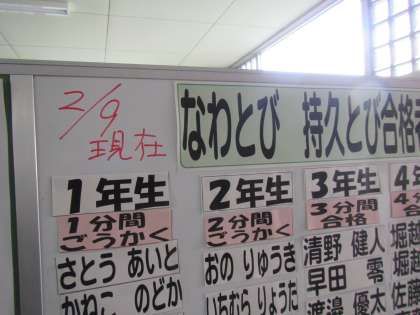 2/9
現在
なわとび 持久とび合格
1年生 2年生 3年生 4年
1分間 2分間 3分間 4分
ごうかく ごうかく 合格
さとう あいと おの りゅうき 清野 健人 堀越
かねこ のどか いちむら りょうた 早田 零 堀越
渡邉 優太 佐藤